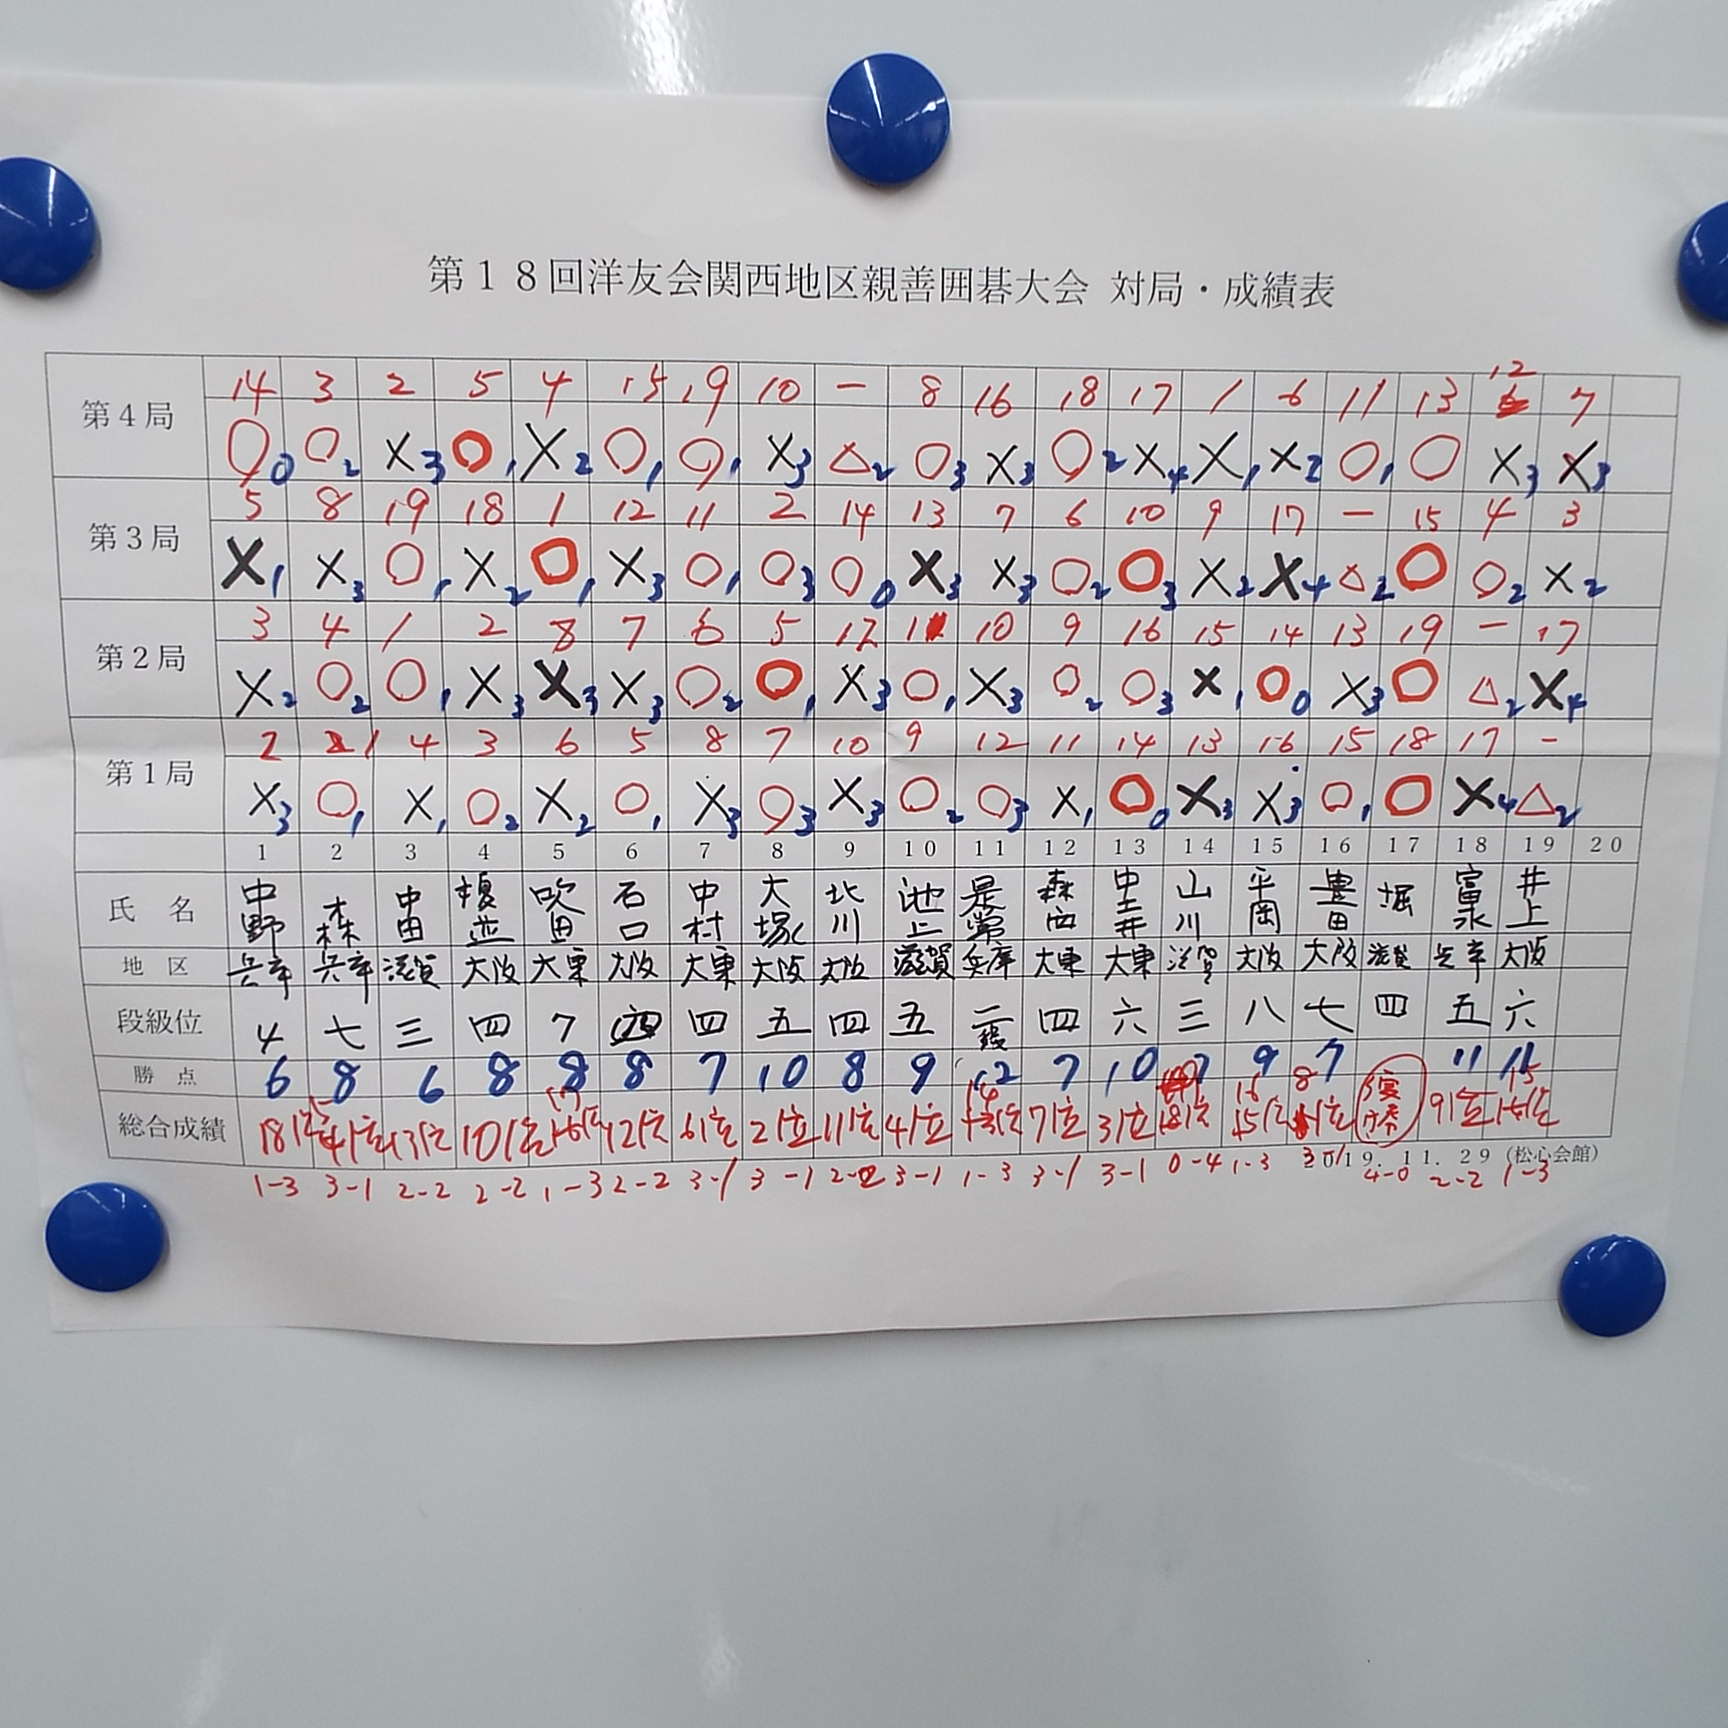 第18回洋友会関西地区親善囲碁大会 対局・成績表
第4局 14 3 2 5 4 15 19 10 - 8 16 18 17 1 6 11 13 12 7
○0 ○2 ×3 ○1 ×2 ○1 ○1 ×3 △2 ○3 ×3 ○2 ×4 ×1 ×2 ○1 ○ ×3 ×3
第3局 5 8 19 18 1 12 11 2 14 13 7 6 10 9 17 - 15 4 3
×1 ×3 ○1 ×2 ○1 ×3 ○1 ○3 ○0 ×3 ×3 ○2 ○3 ×2 ×4 △2 ○ ○2 ×2
第2局 3 4 1 2 8 7 6 5 12 11 10 9 16 15 14 13 19 - 17
×2 ○2 ○1 ×3 ×3 ×3 ○2 ○1 ×3 ○1 ×3 ○2 ○3 ×1 ○0 ×3 ○ △2 ×4
第1局 2 1 4 3 6 5 8 7 10 9 12 11 14 13 16 15 18 17 -
×3 ○1 ×1 ○2 ×2 ○1 ×3 ○3 ×3 ○2 ○3 ×1 ○0 ×3 ×3 ○1 ○ ×4 △2
1 2 3 4 5 6 7 8 9 10 11 12 13 14 15 16 17 18 19 20
氏 名 中野 森 中田 榎並 吹田 石口 中村 大塚 北川 池上 是常 森西 中土井 山川 平岡 豊田 堀 富永 井上
地 区 兵庫 兵庫 滋賀 大阪 大東 大阪 大東 大阪 大阪 滋賀 兵庫 大東 大東 滋賀 大阪 大阪 滋賀 兵庫 大阪
段級位 4 七 三 四 7 四 四 五 四 五 二段 四 六 三 八 七 四 五 六
勝 点 6 8 6 8 8 8 7 10 8 9 12 7 10 7 9 7 11 11
総合成績 18位 5位 13位 10位 17位 12位 6位 2位 11位 4位 14位 7位 3位 16位 8位 優勝 9位 15位
2019.11.29(松心会館)
1-3 3-1 2-2 2-2 1-3 2-2 3-1 3-1 2-2 3-1 1-3 3-1 3-1 0-4 1-3 3-1 4-0 2-2 1-3